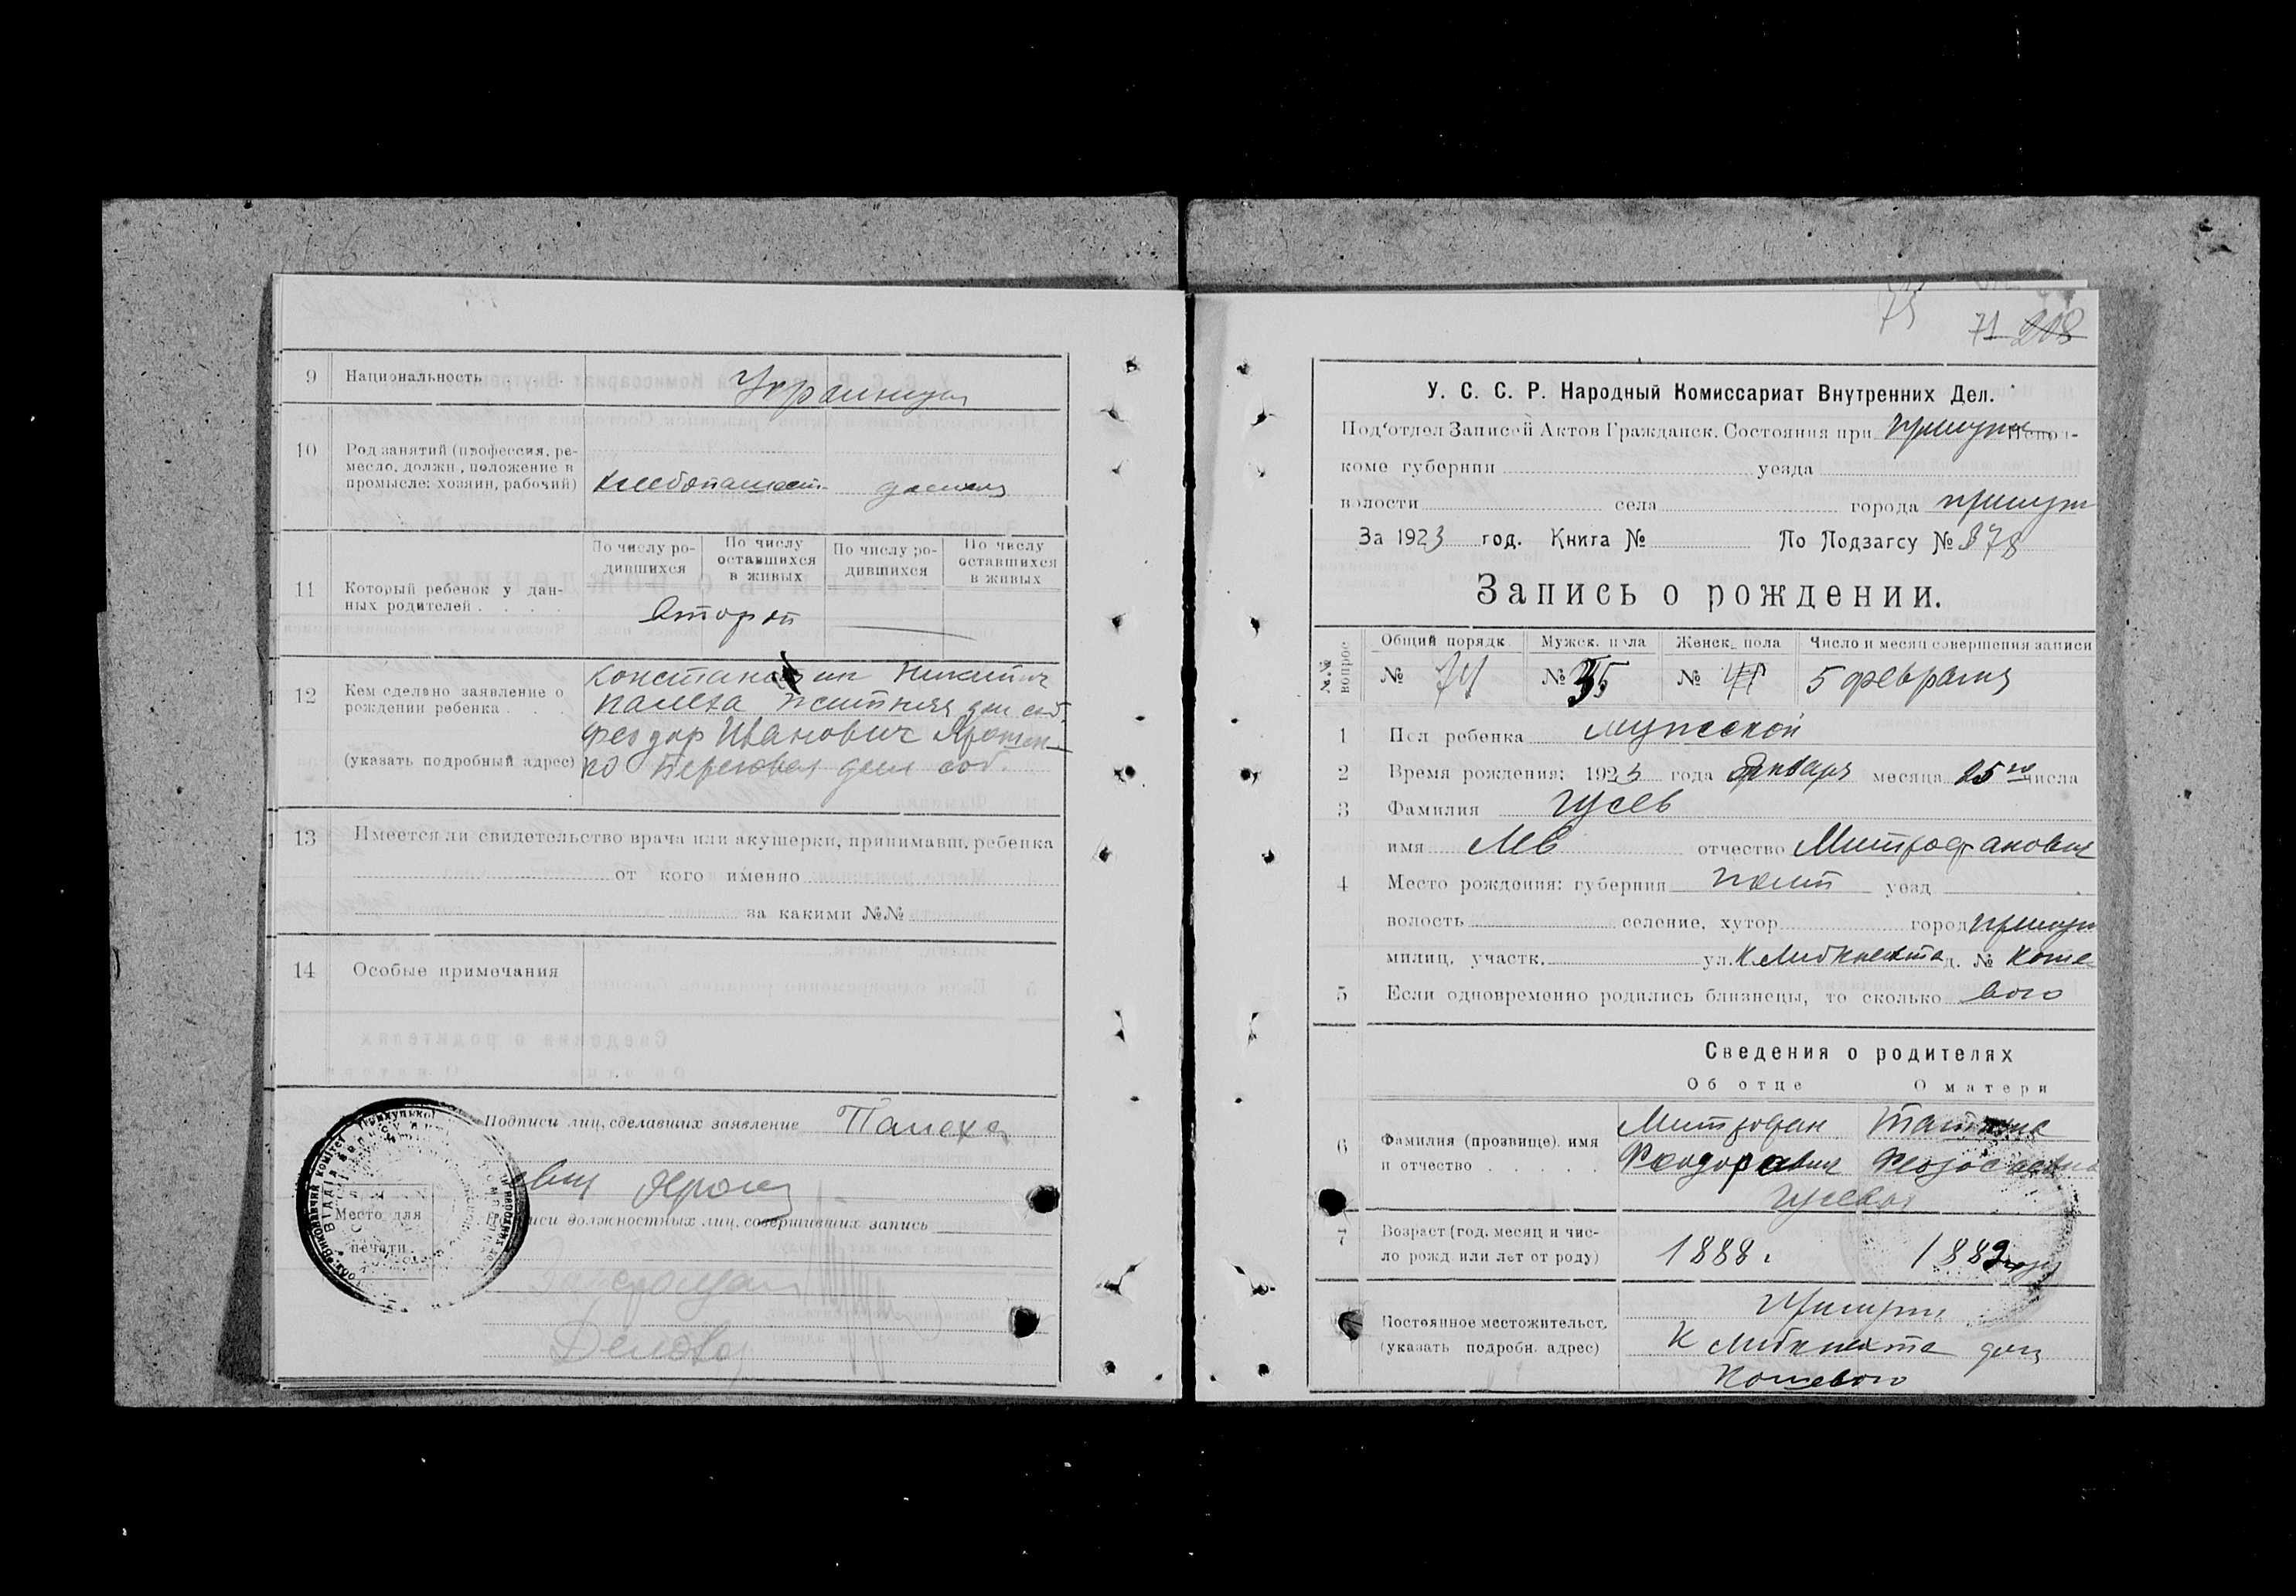 9 Национальность Украинцы
10 Род занятий (профессия, ре-
месло, должн., положение в
промысле: хозяин, рабочий) хлебопашест.
По числу ро-
дившихся
По числу
оставшихся
в живых
По числу ро-
дившихся
По числу
оставшихся
в живых
11 Который ребенок у дан-
ных родителей . . . . Второй
12 Кем сделано заявление о
рождении ребенка . . .
(указать подробный адрес)
Константин Никитич
Палеха Житняя дом соб.
Феодор Иванович Ярошен-
ко дом соб.
13 Имеется ли свидетельство врача или акушерки, принимавш. ребенка
от кого именно
за какими №№
14 Особые примечания
Подписи лиц, сделавших заявление Палеха
Подписи должностных лиц, совершивших запись
Место для
печати
Делов
75
71 208
У. С. С. Р. Народный Комиссариат Внутренних Дел.
Под'отдел Записей Актов Гражданск. Состояния при Прилуцк Испол-
коме губернии уезда
волости села города Прилуки
За 1923 год. Книга № По Подзагсу № 378
Запись о рождении.
№№ вопрос.
Общий порядк. Мужск. пола Женск. пола Число и месяц совершения записи
№ 74 № 35 № 5 февраля
1 Пол ребенка мужской
2 Время рождения: 1923 года Января месяца 25го числа
3 Фамилия Гусев
имя Лев отчество Митрофанович
4 Место рождения: губерния Полт уезд
волость селение, хутор город Прилуки
милиц. участк. ул. К Либкнехта д. № Коше
5 Если одновременно родились близнецы, то сколько вого
Сведения о родителях
Об отце О матери
6 Фамилия (прозвище), имя
и отчество . . . . .
Митрофан Татьяна
Феодорович
Гусевы
7 Возраст (год, месяц и чис-
ло рожд. или лет от роду) 1888 г. 1889 году
Постоянное местожительст.
(указать подробн. адрес)
Прилуки
К Либкнехта дом
Кошевого